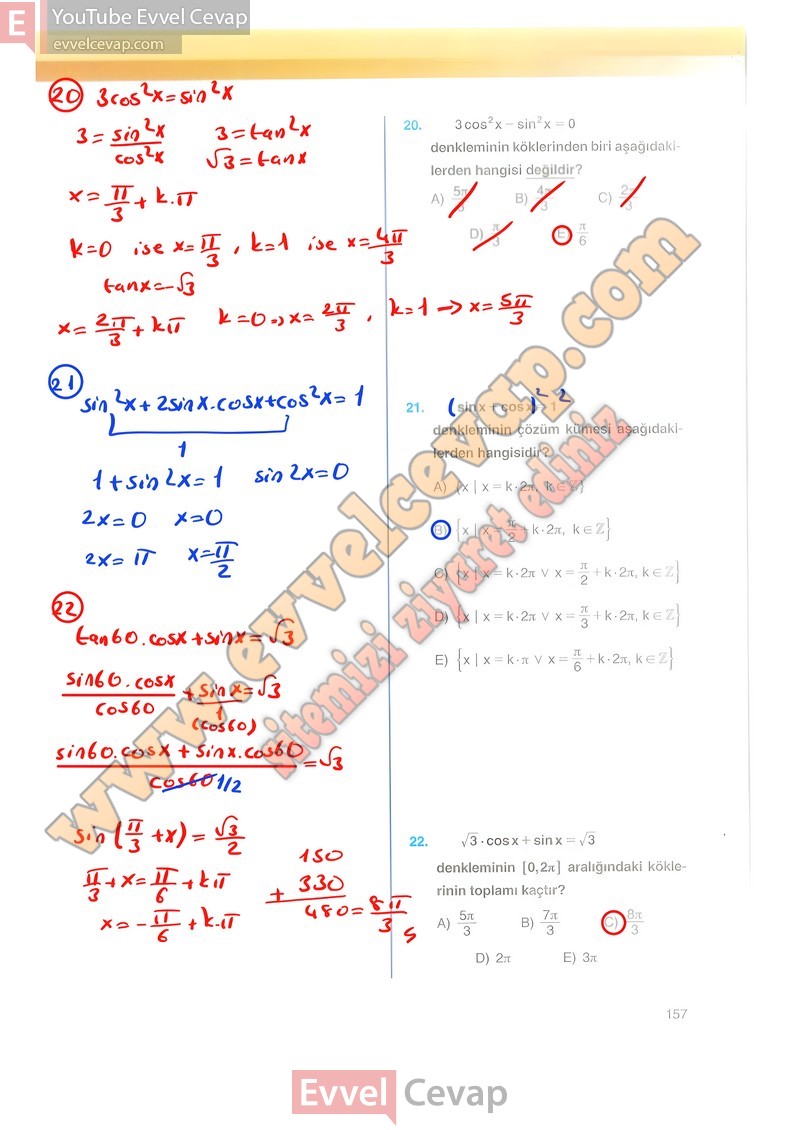 E YouTube Evvel Cevap
evvelcevap.com
20 3cos²x=sin²x
3 = sin²x/cos²x   3=tan²x
√3=tanx
x = π/3 + k.π
k=0 ise x=π/3, k=1 ise x=4π/3
tanx=-√3
x = 2π/3 + kπ   k=0 => x=2π/3, k=1 -> x=5π/3
21
sin²x+2sinx.cosx+cos²x=1
1
1+sin2x=1   sin2x=0
2x=0   x=0
2x=π   x=π/2
22
tan60.cosx+sinx=√3
sin60.cosx/cos60 + sinx/1 = √3
(cos60)
sin60.cosx+sinx.cos60/cos60 1/2 = √3
sin(π/3 +x) = √3/2
π/3 +x = π/6 + kπ
x = -π/6 + k.π
150
+ 330
480 = 8π/3
20. 3cos²x − sin²x = 0
denkleminin köklerinden biri aşağıdaki-
lerden hangisi değildir?
A) 5π/3   B) 4π/3   C) 2π/3
D) π/3   E) π/6
21. (sinx + cosx)² = 1 2
denkleminin çözüm kümesi aşağıdaki-
lerden hangisidir?
A) {x | x = k·2π, k∈ℤ}
B) {x | x = π/2 + k·2π, k∈ℤ}
C) {x | x = k·2π ∨ x = π/2 + k·2π, k∈ℤ}
D) {x | x = k·2π ∨ x = π/3 + k·2π, k∈ℤ}
E) {x | x = k·π ∨ x = π/6 + k·2π, k∈ℤ}
22. √3·cosx + sinx = √3
denkleminin [0,2π] aralığındaki kökle-
rinin toplamı kaçtır?
A) 5π/3   B) 7π/3   C) 8π/3
D) 2π   E) 3π
157
www.evvelcevap.com
sitemizi ziyaret ediniz
Evvel Cevap